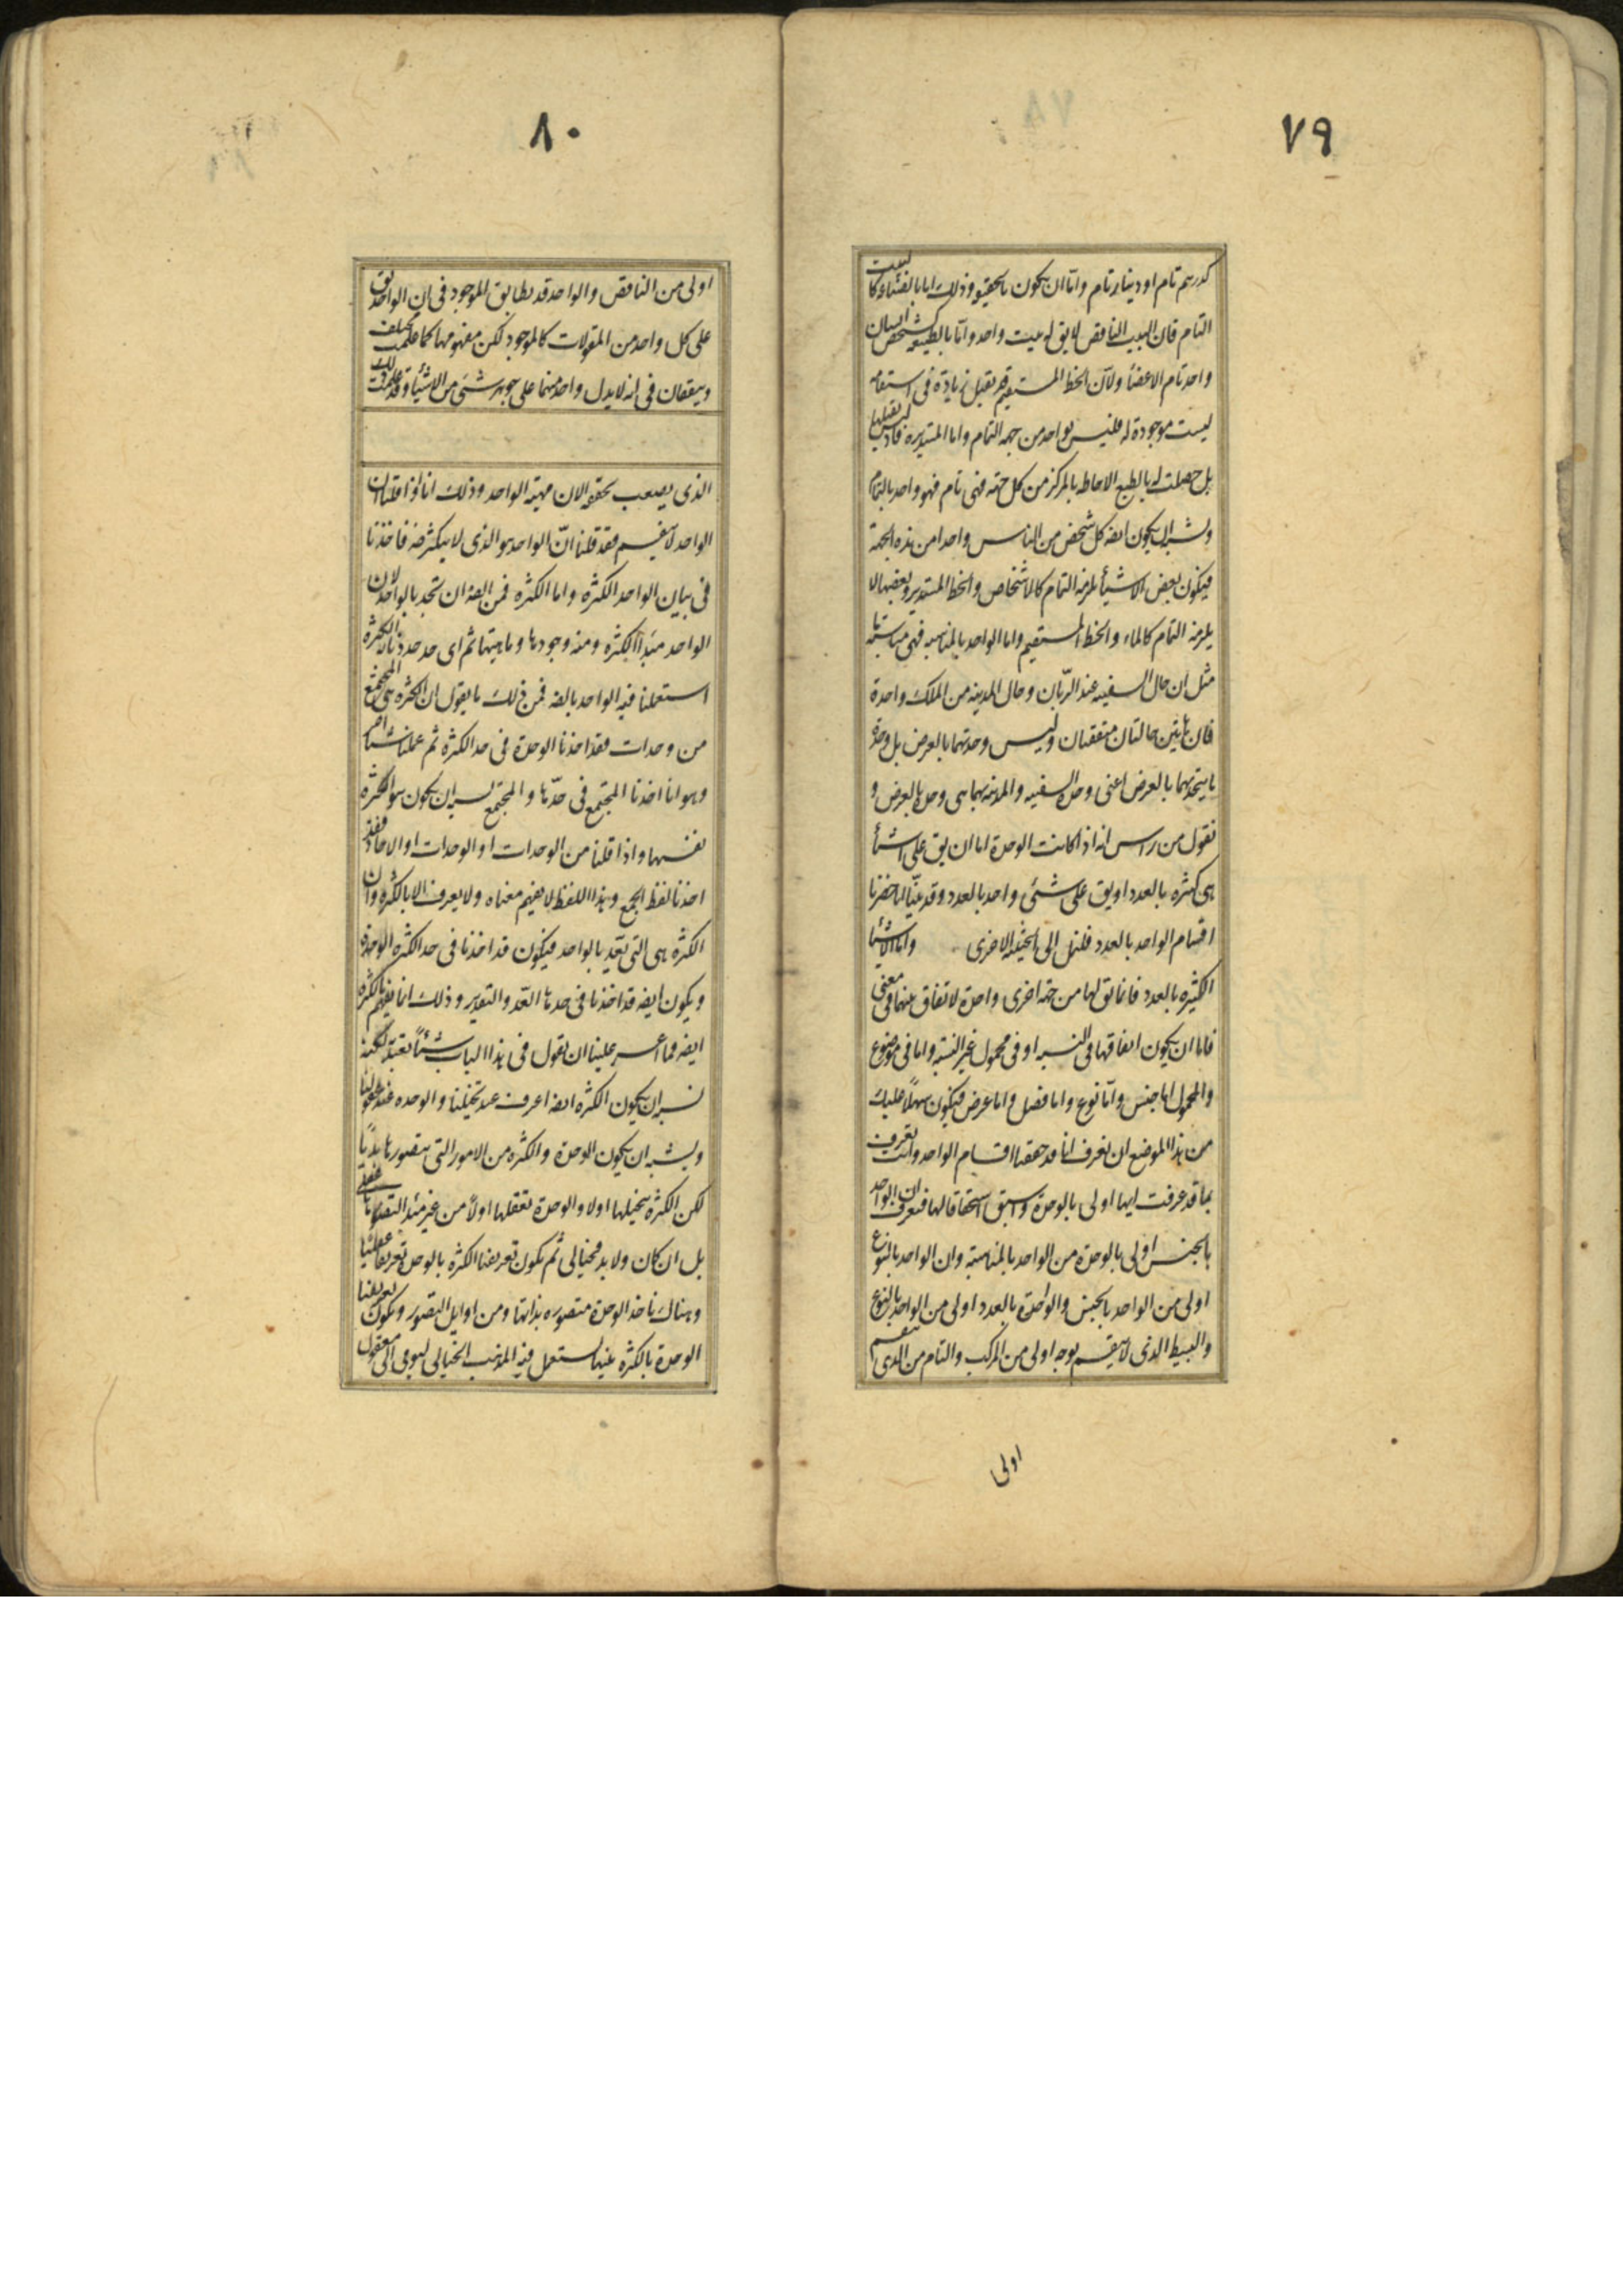 ٧٩
كدرهم تام او دينار تام واما ان يكون بالحقيقة وذلك اما بالصناعة كالبيت
التام فان البيت الناقص لا يق له بيت واحد واما بالطبيعة كشخص انسان
واحد تام الاعضا ولان الخط المستقيم قد يقبل زيادة فى استقامة
ليست موجودة له فليس بواحد من جهه التمام واما المستدير فاذ ليس يقبلها
بل حصلت له بالطبع الاحاطه بالمركز من كل جهه فهى تام فهو واحد بالتمام
ويشبه ان يكون ايضه كل شخص من الناس واحدا من هذه الجهة
فيكون بعض الاشيأ يلزمه التمام كالاشخاص والخط المستدير وبعضها لا
يلزمه التمام كالماء والخط المستقيم واما الواحد بالمناسبه فهى مناسبة ما
مثل ان حال السفينه عند الربّان وحال المدينه من الملك واحدة
فان هاتين حالتان متفقتان وليس وحدتهما بالعرض بل وحدة
ما يتحد بهما بالعرض اعنى وحدة السفينه والمدينه بهما هى وحدة بالعرض و
نقول من راس انه اذا كانت الوحدة اما ان يق على اشيأ
هى كثيره بالعدد او يق على شئى واحد بالعدد وقد بيّنا انا حصرنا
اقسام الواحد بالعدد فلنمل الى الحيثية الاخرى واما الاشيا
الكثيره بالعدد فانما يق لها من جهه اخرى واحدة لاتفاق بينها فى معنى
فاما ان يكون اتفاقها فى النسبه او فى محمول غير النسبه واما فى موضوع
والمحمول اما جنس واما نوع واما فصل واما عرض فيكون سهلاً عليك
من هذا الموضع ان تعرف انا قد حققنا اقسام الواحد وانت تعرف
بما قد عرفت ايها اولى بالوحدة واسبق استحقاقا لها فتعرف ان الواحد
بالجنس اولى بالوحدة من الواحد بالمناسبة وان الواحد بالنوع
اولى من الواحد بالجنس والواحدة بالعدد اولى من الواحد بالنوع
والبسيط الذى لا ينقسم بوجه اولى من المركب والتام من الذى ينقسم
اولى
٨٠
اولى من الناقص والواحد قد يطابق الموجود فى ان الواحد يق
على كل واحد من المقولات كالموجود لكن مفهومهما كما علمت مختلف
ويتفقان فى انه لا يدل واحد منهما على جوهر شئى من الاشيأ وقد علمت ذلك
الذى يصعب تحققه الان مهية الواحد وذلك انا اذا قلنا ان
الواحد لا ينقسم فقد قلنا انّ الواحد هو الذى لا يتكثر ضه فاخذنا
فى بيان الواحد الكثره واما الكثره فمن الضه ان تحد بالواحد لان
الواحد مبدأ الكثره ومنه وجودها وماهيتها ثم اى حد حددنا به الكثره
استعملنا فيه الواحد بالضه فمن ذلك ما يقول ان الكثره هى المجتمع
من وحدات فقد اخذنا الوحدة فى حد الكثره ثم عملنا شيأ اخر
وهو انا اخذنا المجتمع فى حدّها والمجتمع يشبه ان يكون هو الكثره
نفسها واذا قلنا من الوحدات او الوحدات او الاحاد فقد
اخذنا لفظ الجمع وهذا اللفظ لا يفهم معناه ولا يعرف الا بالكثره وان
الكثره هى التى تعد بالواحد فيكون قد اخذنا فى حد الكثره الوحدة
ويكون ايضه قد اخذنا فى حدها العد والتقدير وذلك انما يفهم بالكثره
ايضه فما اعسر علينا ان نقول فى هذا الباب شيئاً يعتد به لكنه
يشبه ان يكون الكثره ايضه اعرف عند تخيلنا والوحده عند عقولنا
ويشبه ان يكون الوحدة والكثره من الامور التى نتصورها بديًا
لكن الكثرة نتخيلها اولا والوحدة نعقلها اولاً من غير مبدا لتصورها عقلى
بل ان كان ولا بد فخيالى ثم يكون تعريفنا الكثره بالوحدة تعريفا عقليا
وهناك ناخذ الوحدة متصوره بذاتها ومن اوايل التصور ويكون تعريفنا
الوحدة بالكثره تنبيها يستعمل فيه المذهب الخيالى ليومى الى معقول